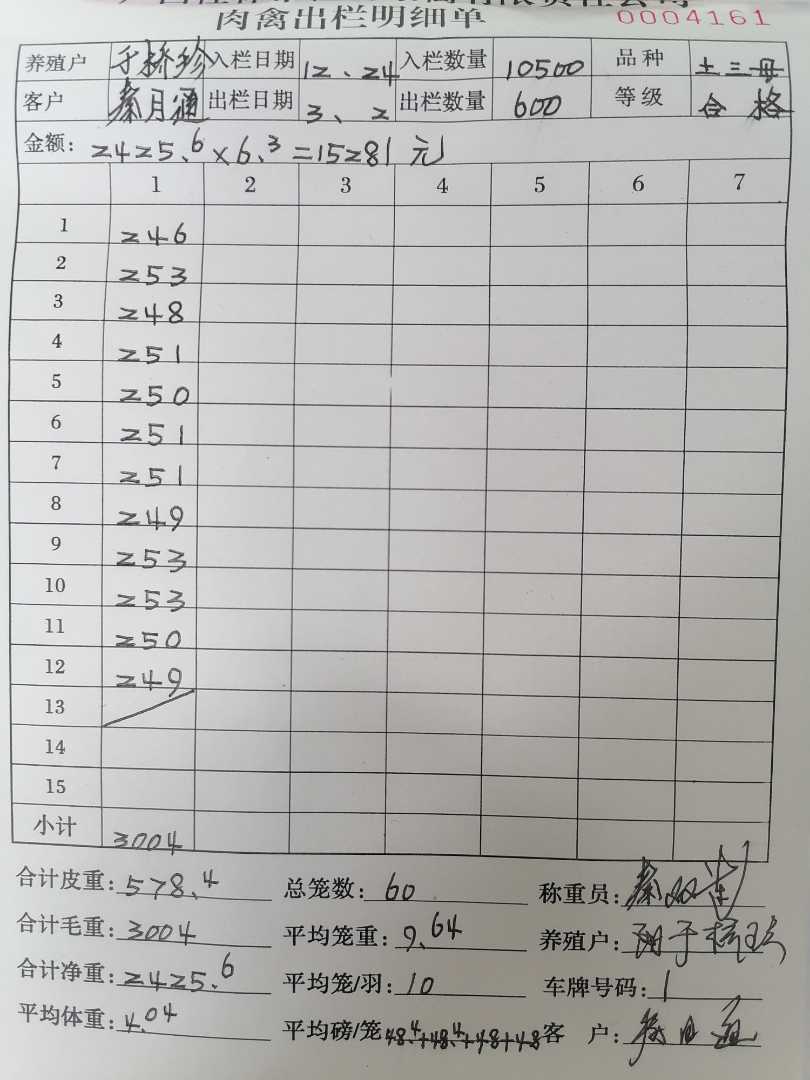 肉禽出栏明细单
0004161
养殖户 于桥珍 入栏日期 12、24 入栏数量 10500 品种 土三母
客户 秦月通 出栏日期 3、2 出栏数量 600 等级 合格
金额: 2425.6×6.3=15281元
1 2 3 4 5 6 7
1 246
2 253
3 248
4 251
5 250
6 251
7 251
8 249
9 253
10 253
11 250
12 249
13
14
15
小计 3004
合计皮重: 578.4 总笼数: 60 称重员: 秦
合计毛重: 3004 平均笼重: 9.64 养殖户:
合计净重: 2425.6 平均笼/羽: 10 车牌号码: 1
平均体重: 4.04 平均磅/笼 48.4+48.4+48+48 客 户: